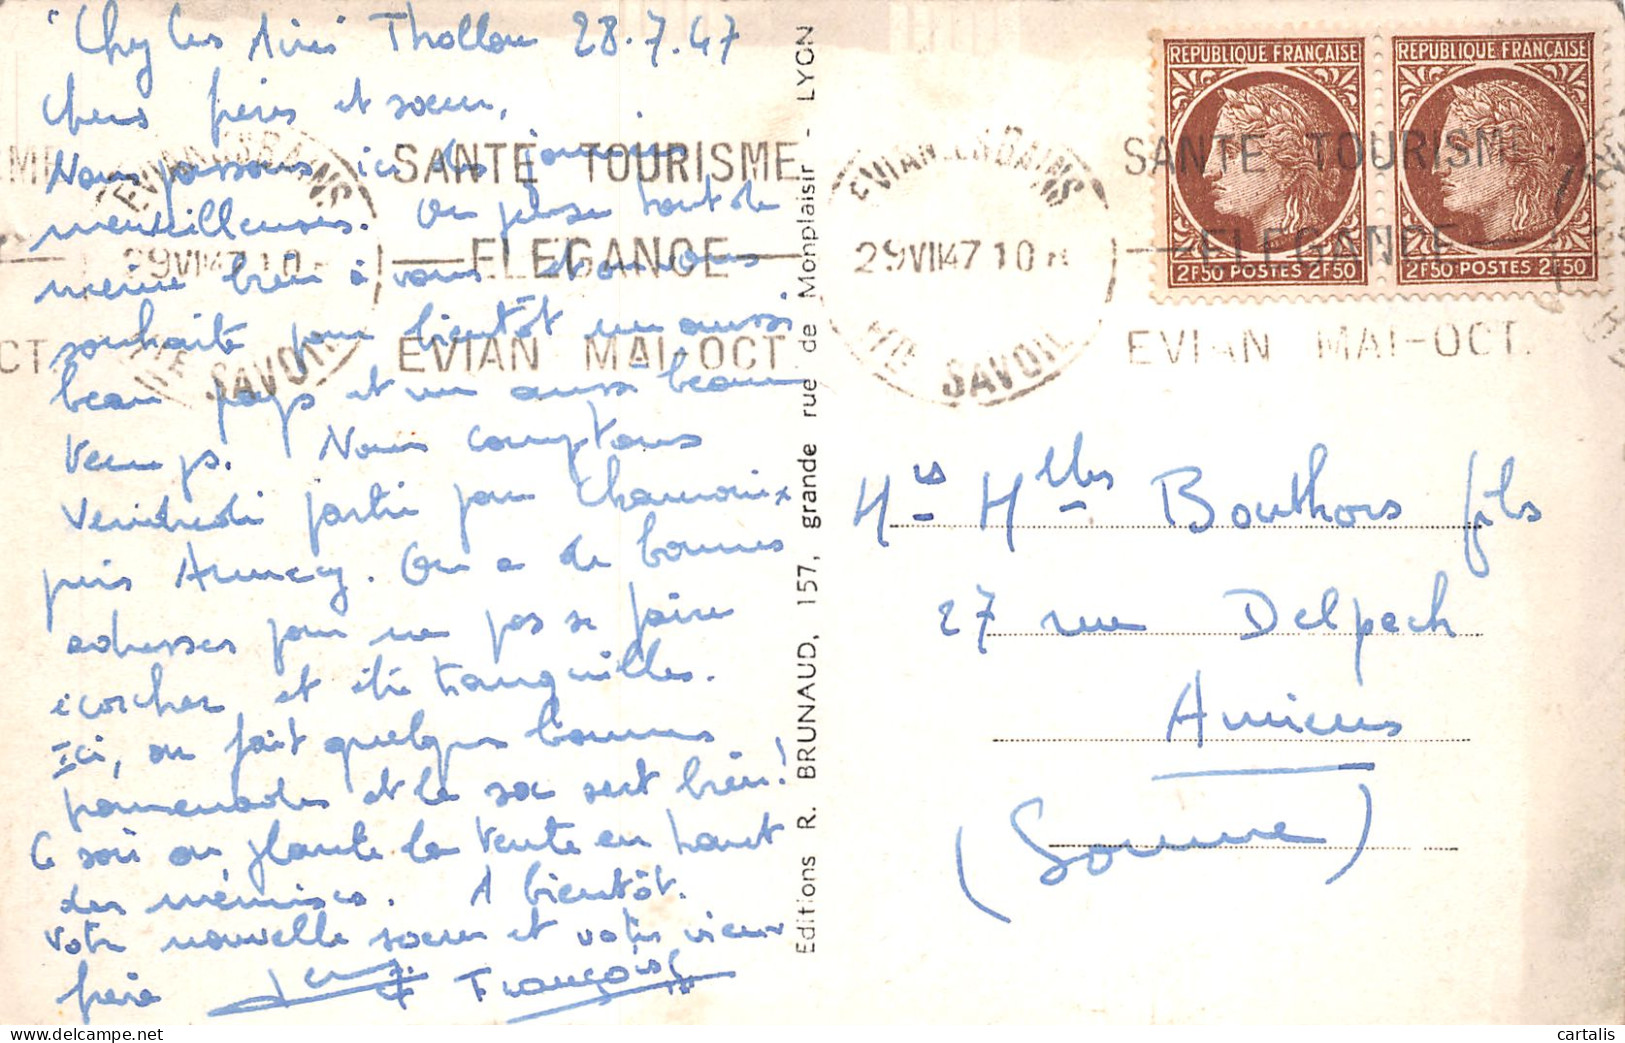 "Chez les Aires" Thollon 28.7.47
chers frères et sœur,
Nous passons ici des journées
merveilleuses. On pense tout de
même bien à vous et on vous
souhaite pour bientôt un aussi
beau pays et un aussi beau
temps. Nous comptons
Vendredi partir pour Chamonix
puis Annecy. On a de bonnes
adresses pour ne pas se faire
écorcher et être tranquilles.
Ici, on fait quelques bonnes
promenades et le sac sert bien!
Ce soir on plante la tente en haut
des mémises. A bientôt.
Votre nouvelle sœur et votre vieux
frère
et Françoise
Editions R. BRUNAUD, 157, grande rue de Monplaisir - LYON
REPUBLIQUE FRANÇAISE
2F50 POSTES 2F50
REPUBLIQUE FRANÇAISE
2F50 POSTES 2F50
EVIAN LES BAINS
29 VII 47 10 H
HTE SAVOIE
SANTE TOURISME
ELEGANCE
EVIAN MAI-OCT
EVIAN LES BAINS
29 VII 47 10 H
HTE SAVOIE
SANTE TOURISME
ELEGANCE
EVIAN MAI-OCT.
Mrs Mlles Bouthors fils
27 rue Delpech
Amiens
(Somme)
cartalis
delcampe.net